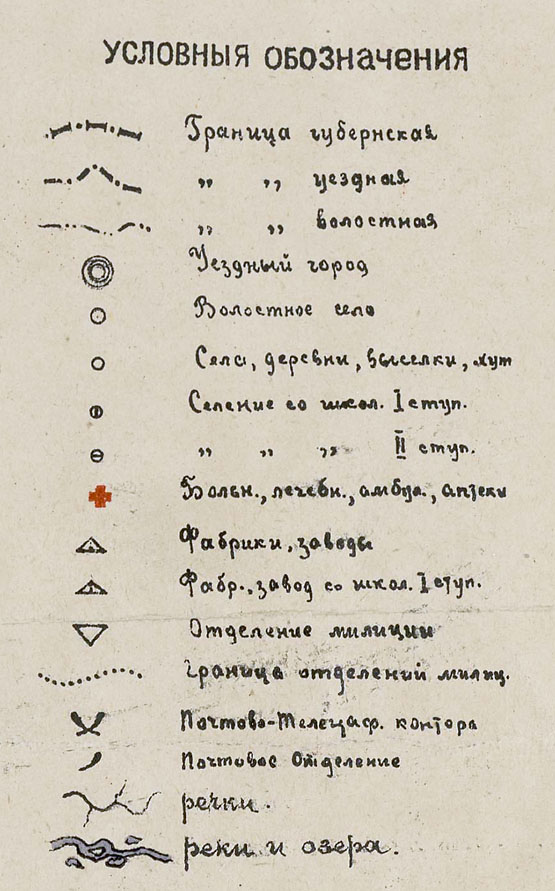 УСЛОВНЫЯ ОБОЗНАЧЕНИЯ
Граница губернская
„ „ уездная
„ „ волостная
Уездный город
Волостное село
Села, деревни, выселки, хут
Селение со школ. I ступ.
„ „ „ II ступ.
Больн., лечебн., амбул., аптеки
Фабрики, заводы
Фабр., завод со школ. I ступ.
Отделение милиции
Граница отделений милиц.
Почтово-Телеграф. контора
Почтовое Отделение
речки.
реки и озера.